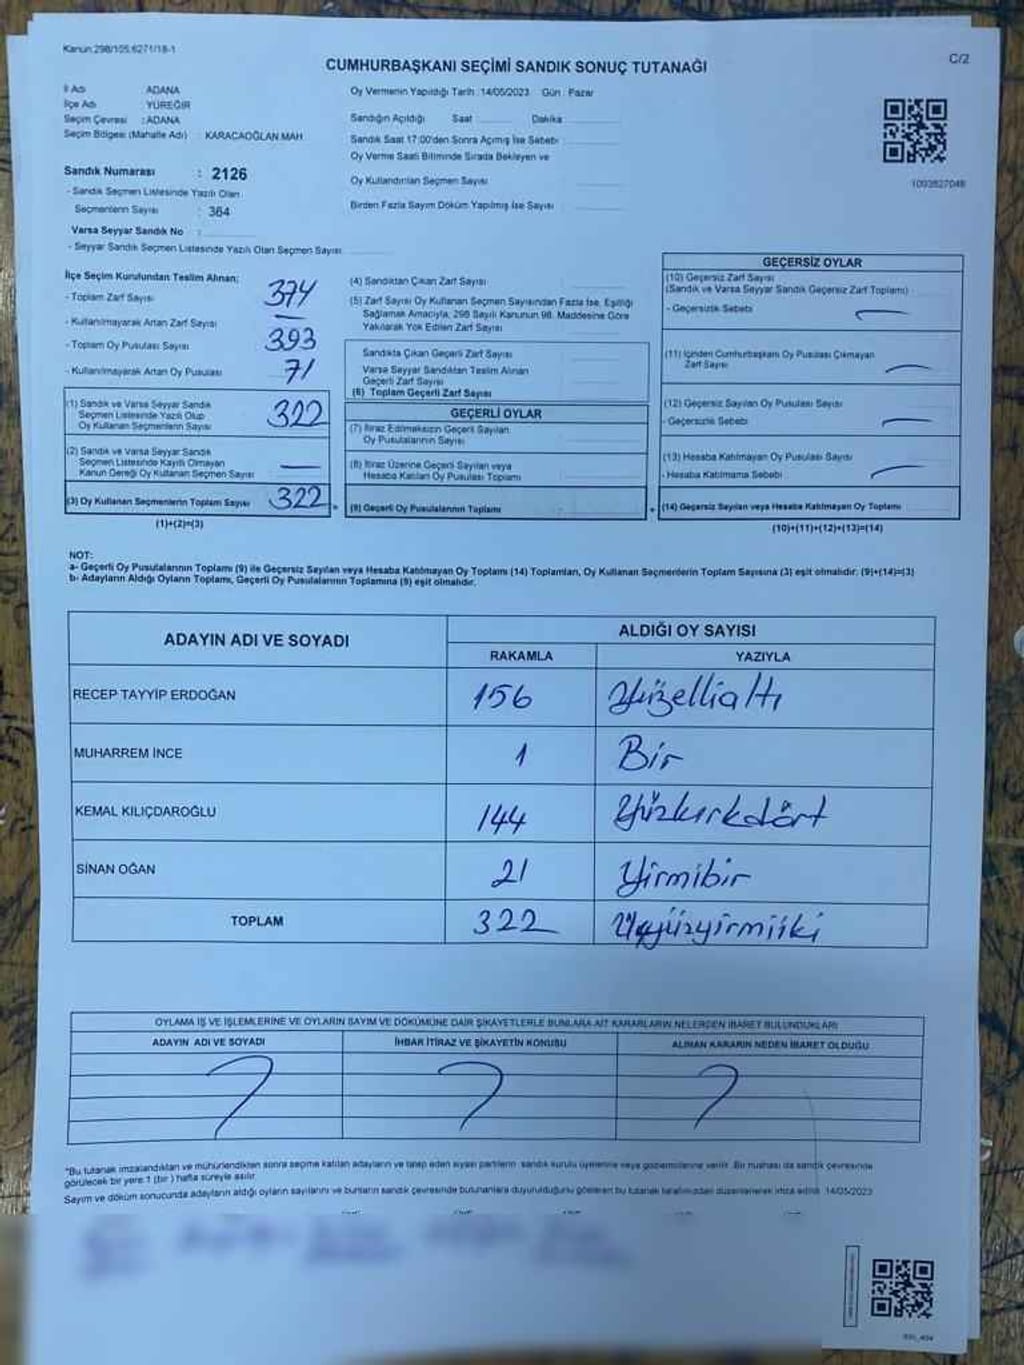 Kanun:298/105;6271/18-1
C/2
CUMHURBAŞKANI SEÇİMİ SANDIK SONUÇ TUTANAĞI
İl Adı : ADANA
İlçe Adı : YÜREĞİR
Seçim Çevresi : ADANA
Seçim Bölgesi (Mahalle Adı) : KARACAOĞLAN MAH.
Sandık Numarası : 2126
- Sandık Seçmen Listesinde Yazılı Olan
Seçmenlerin Sayısı : 364
Varsa Seyyar Sandık No :
- Seyyar Sandık Seçmen Listesinde Yazılı Olan Seçmen Sayısı
Oy Vermenin Yapıldığı Tarih : 14/05/2023 Gün : Pazar
Sandığın Açıldığı Saat Dakika
Sandık Saat 17:00'den Sonra Açılmış İse Sebebi
Oy Verme Saati Bitiminde Sırada Bekleyen ve
Oy Kullandırılan Seçmen Sayısı
Birden Fazla Sayım Döküm Yapılmış İse Sayısı
1093627048
İlçe Seçim Kurulundan Teslim Alınan;
- Toplam Zarf Sayısı 374
- Kullanılmayarak Artan Zarf Sayısı —
- Toplam Oy Pusulası Sayısı 393
- Kullanılmayarak Artan Oy Pusulası 71
(1) Sandık ve Varsa Seyyar Sandık
Seçmen Listesinde Yazılı Olup
Oy Kullanan Seçmenlerin Sayısı 322
(2) Sandık ve Varsa Seyyar Sandık
Seçmen Listesinde Kayıtlı Olmayan
Kanun Gereği Oy Kullanan Seçmen Sayısı —
(3) Oy Kullanan Seçmenlerin Toplam Sayısı 322
(1)+(2)=(3)
(4) Sandıktan Çıkan Zarf Sayısı
(5) Zarf Sayısı Oy Kullanan Seçmen Sayısından Fazla İse, Eşitliği
Sağlamak Amacıyla, 298 Sayılı Kanunun 98. Maddesine Göre
Yakılarak Yok Edilen Zarf Sayısı
Sandıkta Çıkan Geçerli Zarf Sayısı
Varsa Seyyar Sandıktan Teslim Alınan
Geçerli Zarf Sayısı
(6) Toplam Geçerli Zarf Sayısı
GEÇERLİ OYLAR
(7) İtiraz Edilmeksizin Geçerli Sayılan
Oy Pusulalarının Sayısı
(8) İtiraz Üzerine Geçerli Sayılan veya
Hesaba Katılan Oy Pusulası Toplamı
(9) Geçerli Oy Pusulalarının Toplamı
GEÇERSİZ OYLAR
(10) Geçersiz Zarf Sayısı
(Sandık ve Varsa Seyyar Sandık Geçersiz Zarf Toplamı)
- Geçersizlik Sebebi —
(11) İçinden Cumhurbaşkanı Oy Pusulası Çıkmayan
Zarf Sayısı —
(12) Geçersiz Sayılan Oy Pusulası Sayısı
- Geçersizlik Sebebi —
(13) Hesaba Katılmayan Oy Pusulası Sayısı
- Hesaba Katılmama Sebebi —
(14) Geçersiz Sayılan veya Hesaba Katılmayan Oy Toplamı
(10)+(11)+(12)+(13)=(14)
NOT:
a- Geçerli Oy Pusulalarının Toplamı (9) ile Geçersiz Sayılan veya Hesaba Katılmayan Oy Toplamı (14) Toplamları, Oy Kullanan Seçmenlerin Toplam Sayısına (3) eşit olmalıdır. (9)+(14)=(3)
b- Adayların Aldığı Oyların Toplamı, Geçerli Oy Pusulalarının Toplamına (9) eşit olmalıdır.
ADAYIN ADI VE SOYADI ALDIĞI OY SAYISI
RAKAMLA YAZIYLA
RECEP TAYYİP ERDOĞAN 156 Yüzellialtı
MUHARREM İNCE 1 Bir
KEMAL KILIÇDAROĞLU 144 Yüzkırkdört
SİNAN OĞAN 21 Yirmibir
TOPLAM 322 Üçyüzyirmiiki
OYLAMA İŞ VE İŞLEMLERİNE VE OYLARIN SAYIM VE DÖKÜMÜNE DAİR ŞİKAYETLERLE BUNLARA AİT KARARLARIN NELERDEN İBARET BULUNDUKLARI
ADAYIN ADI VE SOYADI İHBAR İTİRAZ VE ŞİKAYETİN KONUSU ALINAN KARARIN NEDEN İBARET OLDUĞU
*Bu tutanak imzalandıktan ve mühürlendikten sonra seçime katılan adayların ve talep eden siyasi partilerin sandık kurulu üyelerine veya gözlemcilerine verilir. Bir nüshası da sandık çevresinde
görülecek bir yere 1 (bir) hafta süreyle asılır.
Sayım ve döküm sonucunda adayların aldığı oyların sayılarını ve bunların sandık çevresinde bulunanlara duyurulduğunu gösteren bu tutanak tarafımızdan düzenlenerek imza edildi. 14/05/2023